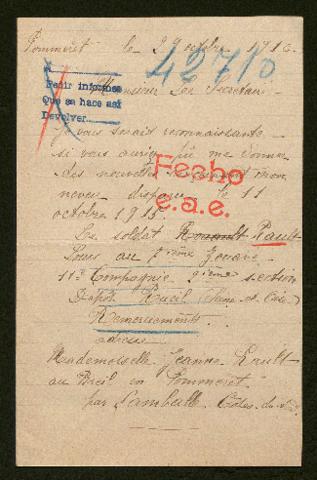 Pommeret le 29 octobre 1916.
42710
Pedir informes
Que se hace así
Devolver
Monsieur Le Secrétaire
Je vous serais reconnaissante
si vous auriez pu me donner
des nouvelles concernant mon
neveu disparu le 11
octobre 1915.
Fecho
e.a.e.
Le soldat Rouault Rault
Louis au 1ème Zouave
11e Compagnie 2ième section
Dépôt Rueil (Seine et Oise)
Remerciements.
adresse
Mademoiselle Jeanne Rault
au Breil en Pommeret
par Lamballe Côtes-du-